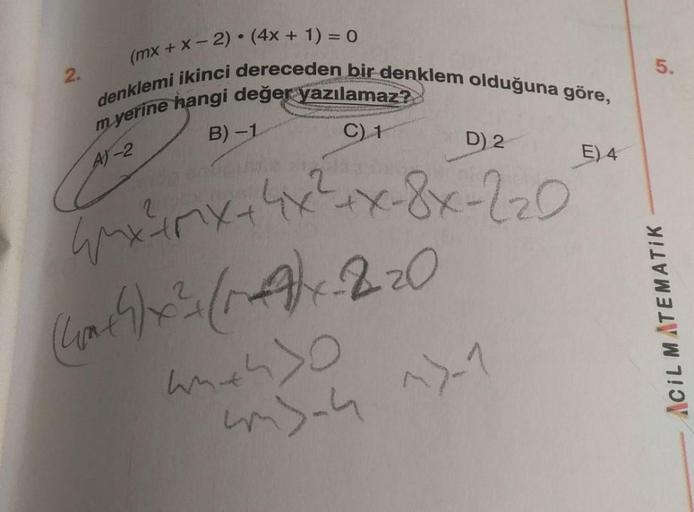 (mx + x – 2) • (4x + 1) = 0
2.
denklemi ikinci dereceden bir denklem olduğuna göre,
m yerine hangi değer yazılamaz?
A) –2 B) –1 C) 1 D) 2 E) 4
4mx²+mx+4x²+x-8x-2=0
(4m+4)x²+(m-7)x-2=0
4m+4>0
4m>-4 m>-1
5.
ACİL MATEMATİK